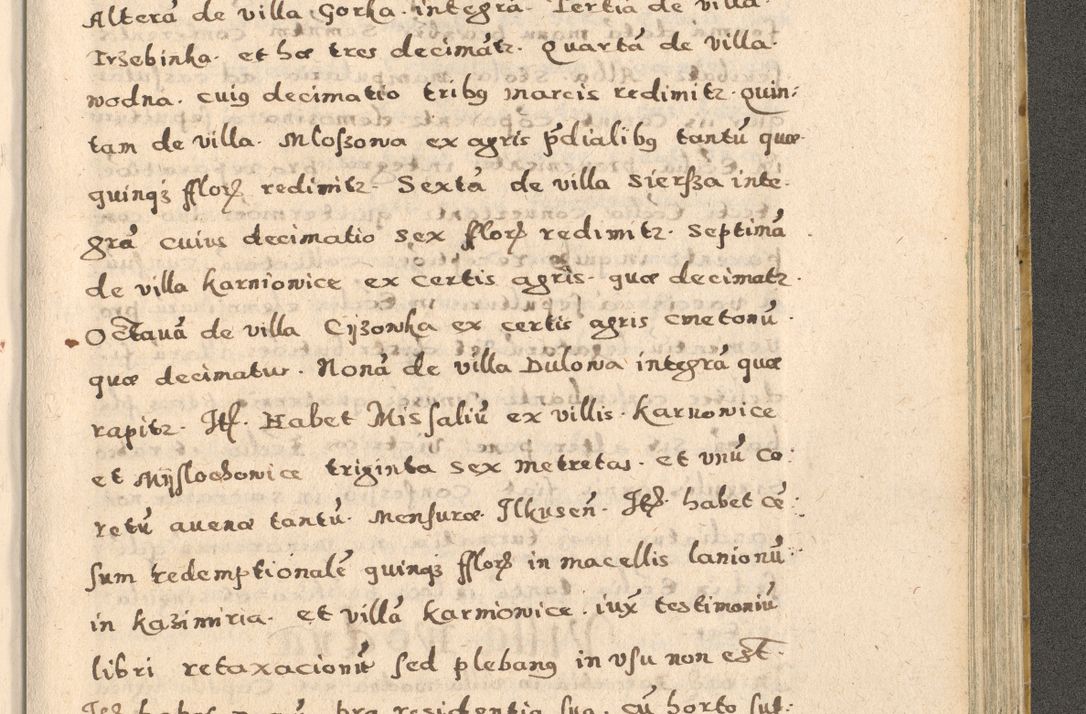 Alterā de villa Gorka. integrā. Tertia de villa.
Trzebinka. et hæ tres decimātr. Quartā de villa.
wodna. cuiꝰ decimatio tribꝰ marcis redimitr. Quin:
tam de villa. Mloszowa ex agris p̄dialibꝰ tantū quæ.
quinqꝫ fflorꝫ redimitr. Sextā de villa Siersza inte.
grā cuius decimatio sex fflorꝫ redimitr. Septimā
de villa Karniowice ex certis agris. quæ decimatr.
Octauā de villa Cyzowka ex certis agris cmetonū.
quæ decimatur. Nonā de villa Dulowa integrā quæ
rapitr. Itꝫ. Habet Missaliū ex villis. Karnowice
et Mÿslochowice triginta sex metretas. et vnū co:
retū auenæ tantū. Mensuræ. Ilkuseñ. Itꝫ. habet cē:
sum redemptionalē quinqꝫ fflorꝫ in macellis lanionū:
in Kazimiria. et villā Karniowice. iux testimoniū
libri retaxacionū sed plebanꝰ in vsu non est.
Itꝫ habet domū pro residentia sua. cū horto sul: